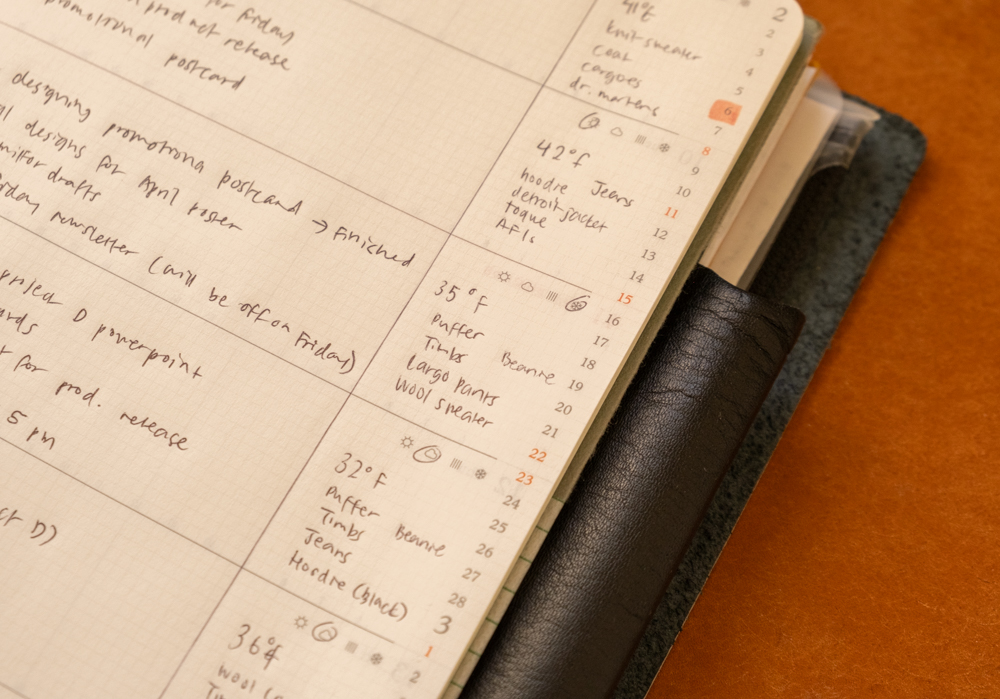 for Friday
product release
promotional
postcard
designing promotional postcard → Finished
designs for April roster
drafts
newsletter (will be off on Friday)
project D powerpoint
for prod. release
5 pm
D)
41°F
knit sweater
coat
cargoes
dr. martens
42°F
hoodie Jeans
detroit jacket
toque
AF1s
35°F
Puffer
Timbs Beanie
Cargo pants
Wool sweater
32°F
Puffer
Timbs Beanie
Jeans
Hoodie (black)
36°F
wool
2
2
3
4
5
6
7
8
9
10
11
12
13
14
15
16
17
18
19
20
21
22
23
24
25
26
27
28
3
1
2